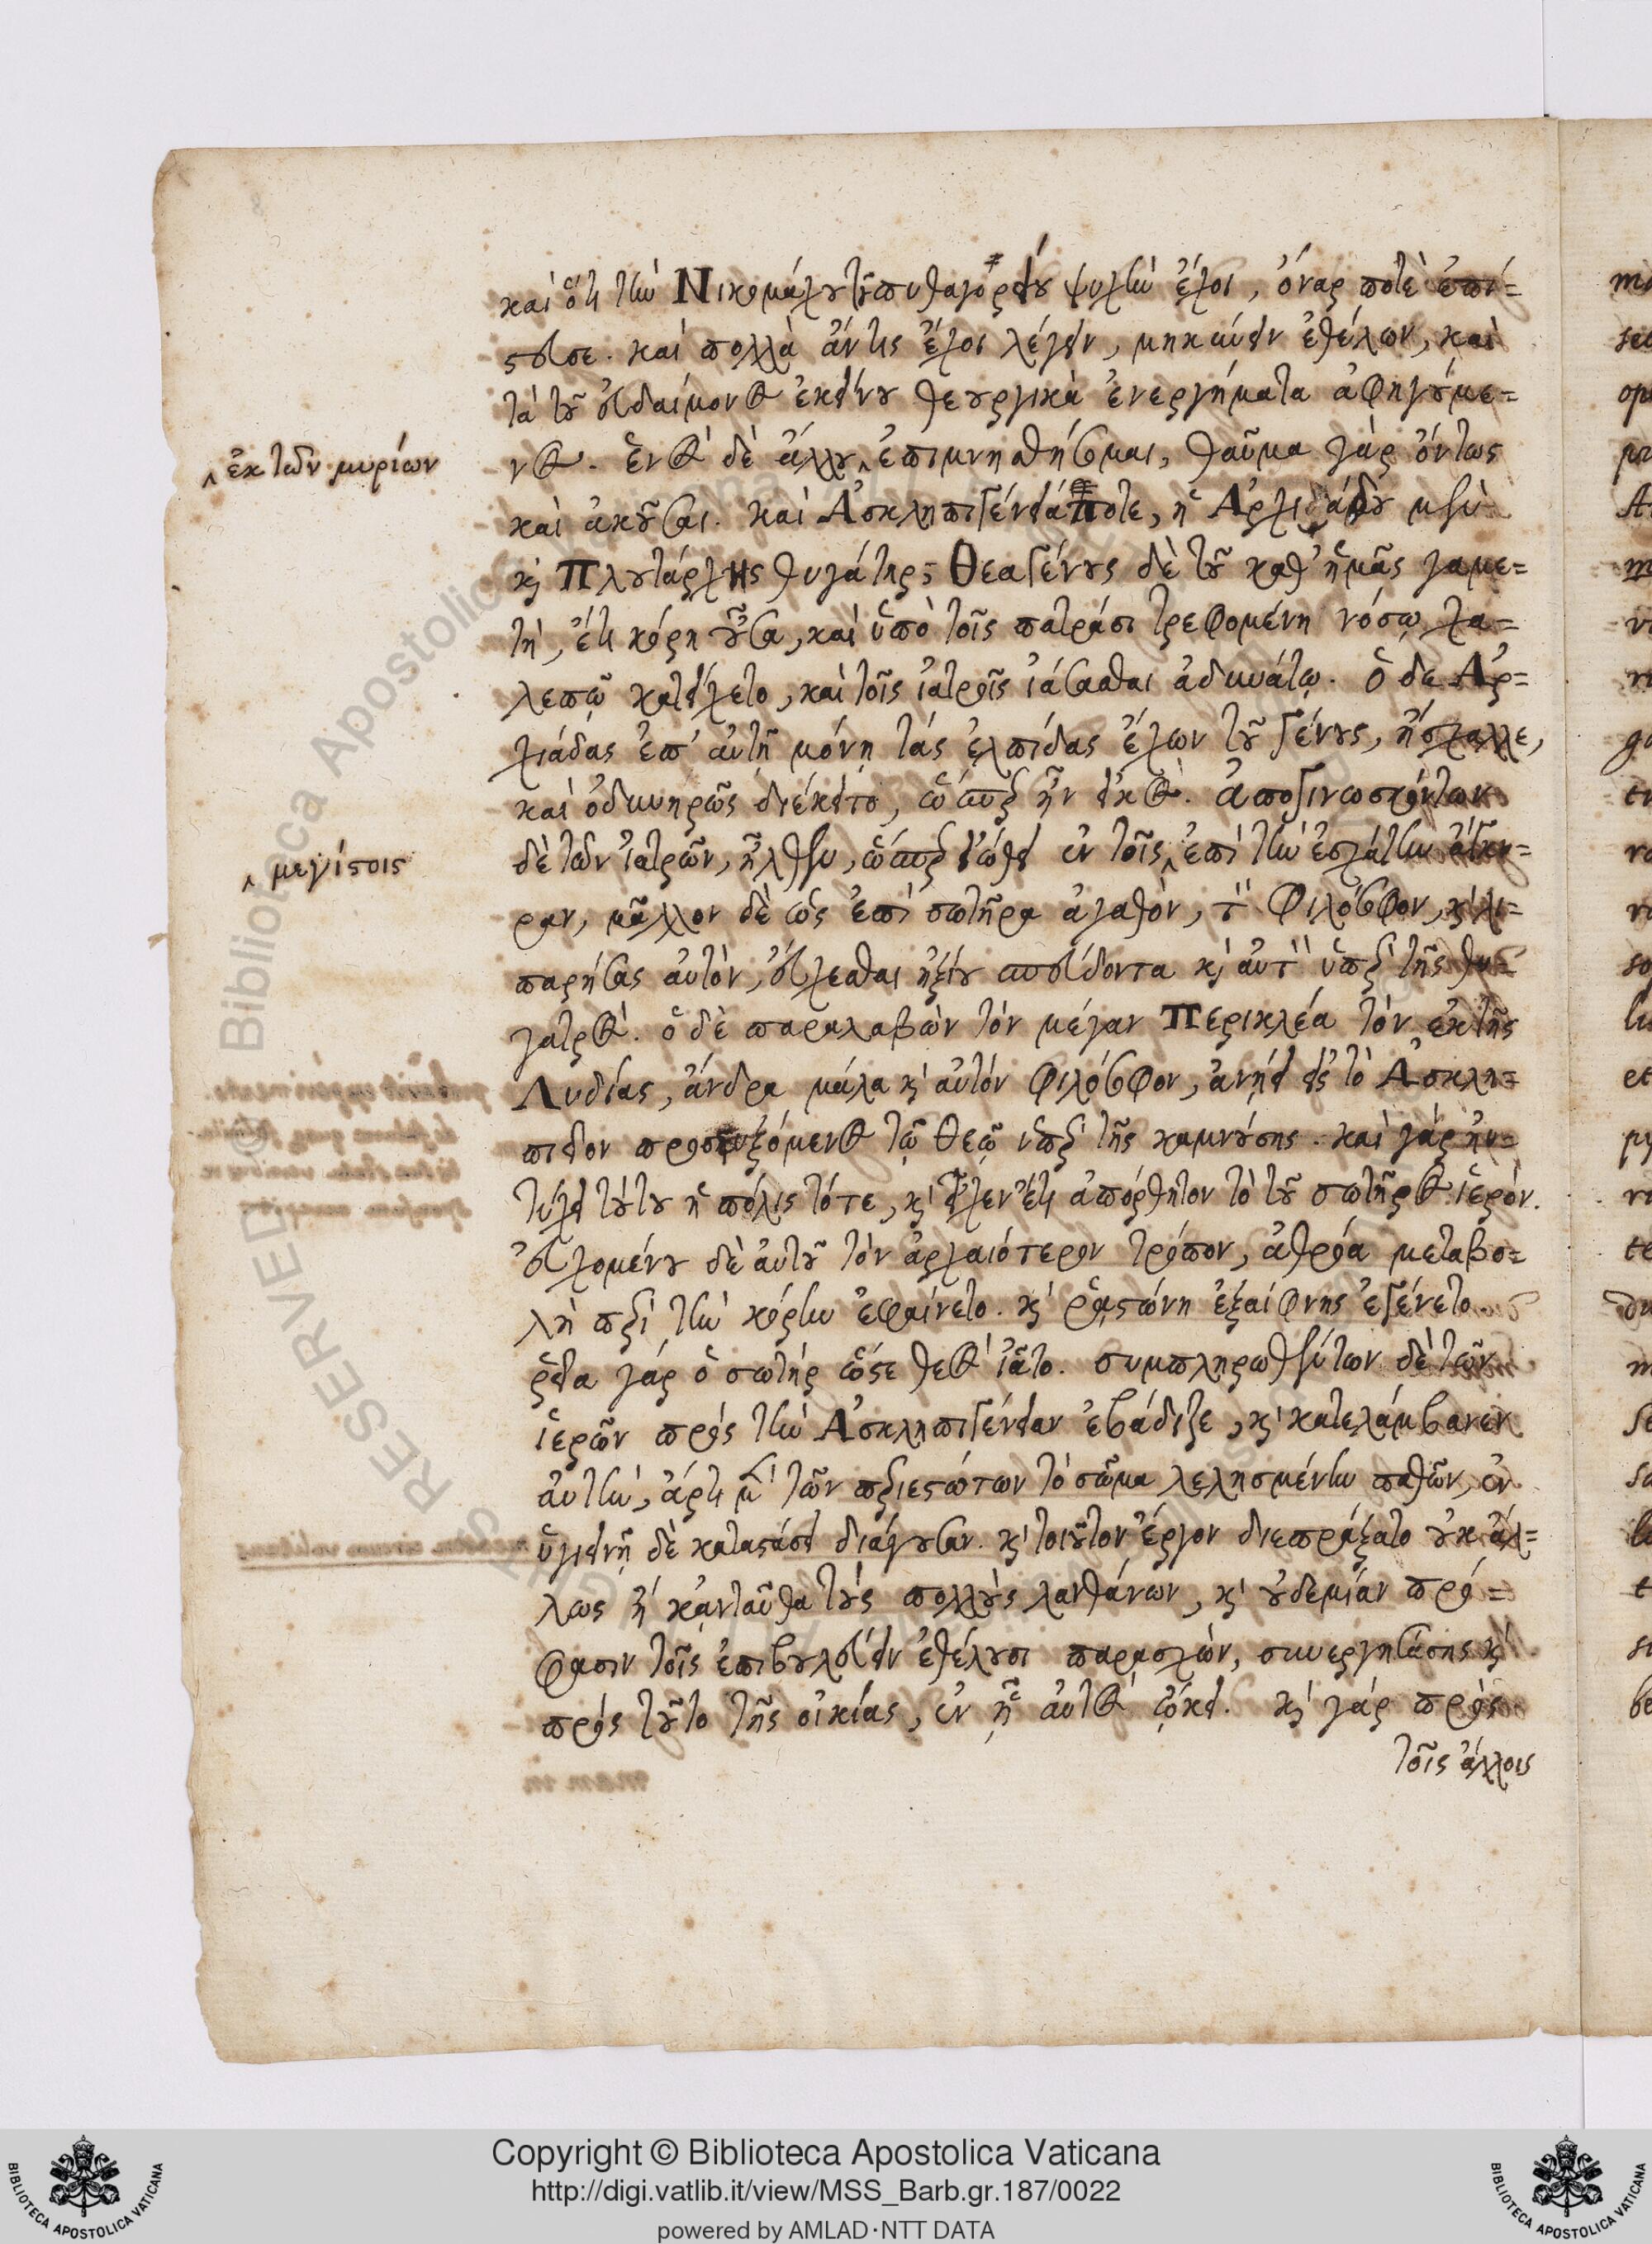 καὶ ὅτι τὴν Νικομάχου τοῦ πυθαγορείου ψυχὴν ἔχοι, ὄναρ ποτὲ ἐπί=
στευσε. καὶ πολλὰ ἄν τις ἔχοι λέγειν, μηκύνειν ἐθέλων, καὶ
τὰ τοῦ εὐδαίμονος ἐκείνου θεουργικὰ ἐνεργήματα ἀφηγούμε=
νος. ἑνὸς δὲ ἄλλου ‸ ἐπιμνησθήσομαι, θαῦμα γὰρ ὄντως
‸ ἐκ τῶν μυρίων
καὶ ἀκοῦσαι. καὶ Ἀσκληπιγένειά ποτε, ἡ Ἀρχιάδου μὲν
κὶ Πλουτάρχης θυγάτηρ, Θεαγένους δὲ τοῦ καθ' ἡμᾶς γαμε=
τὴ, ἔτι κόρη οὖσα, καὶ ὑπὸ τοῖς πατράσι τρεφομένη νόσῳ χα=
λεπῷ κατείχετο, καὶ τοῖς ἰατροῖς ἰάσασθαι ἀδυνάτῳ. ὁ δε Ἀρ=
χιάδας ἐπ' αὐτῇ μόνῃ τὰς ἐλπίδας ἔχων τοῦ γένους, ἤσχαλλε,
καὶ ὀδυνηρῶς διέκειτο, ὥσπερ ἦν εἰκὸς. ἀπογινωσκόντων
δὲ τῶν ἰατρῶν, ἦλθεν, ὥσπερ εἰώθει ἐν τοῖς ‸ ἐπὶ τὴν ἐσχάτην ἄγκυ=
‸ μεγίστοις
ραν, μᾶλλον δὲ ὡς ἐπὶ σωτῆρα ἀγαθὸν, τὸν Φιλόσοφον, κὶ λι=
παρήσας αὐτὸν, εὔχεσθαι ἠξίου σπεύδοντα κὶ αὐτὸν ὑπὲρ τῆς θυ=
γατρὸς. ὁ δὲ παραλαβὼν τὸν μέγαν Περικλέα τὸν ἐκ τῆς
Λυδίας, ἄνδρα μάλα κὶ αὐτὸν φιλόσοφον, ἀνῄει εἰς τὸ Ἀσκλη=
πιεῖον προσευξόμενος τῷ θεῷ ὑπὲρ τῆς καμνούσης. καὶ γὰρ ἠυ=
τύχει τούτου ἡ πόλις τότε, κὶ εἶχεν ἔτι ἀπόρθητον τὸ τοῦ σωτῆρος ἱερόν.
εὐχομένου δὲ αὐτοῦ τὸν ἀρχαιότερον τρόπον, ἀθρόα μεταβο=
λὴ περὶ τὴν κόρην ἐφαίνετο. κὶ ῥᾳστώνη ἐξαίφνης ἐγένετο
ῥεῖα γὰρ ὁ σωτὴρ ὥστε θεὸς ἰᾶτο. συμπληρωθέντων δὲ τῶν
ἱερῶν πρὸς τὴν Ἀσκληπιγένειαν ἐβάδιζε, κὶ κατελάμβανεν
αὐτὴν, ἄρτι μὲν τῶν περιεστώτων τὸ σῶμα λελησμένην παθῶν, ἐν
ὑγιεινῇ δὲ καταστάσει διάγουσαν. κὶ τοιοῦτον ἔργον διεπράξατο οὐκ ἄλ=
λως ἢ κἀνταῦθα τοὺς πολλοὺς λανθάνων, κὶ οὐδεμίαν πρό=
φασιν τοῖς ἐπιβουλεύειν ἐθέλουσι παρασχὼν, συνεργησάσης κὶ
πρὸς τοῦτο τῆς οἰκίας, ἐν ᾗ αὐτὸς ᾤκει. κὶ γὰρ πρὸς
τοῖς ἄλλοις
Copyright © Biblioteca Apostolica Vaticana
http://digi.vatlib.it/view/MSS_Barb.gr.187/0022
powered by AMLAD·NTT DATA
BIBLIOTECA APOSTOLICA VATICANA
BIBLIOTECA APOSTOLICA VATICANA